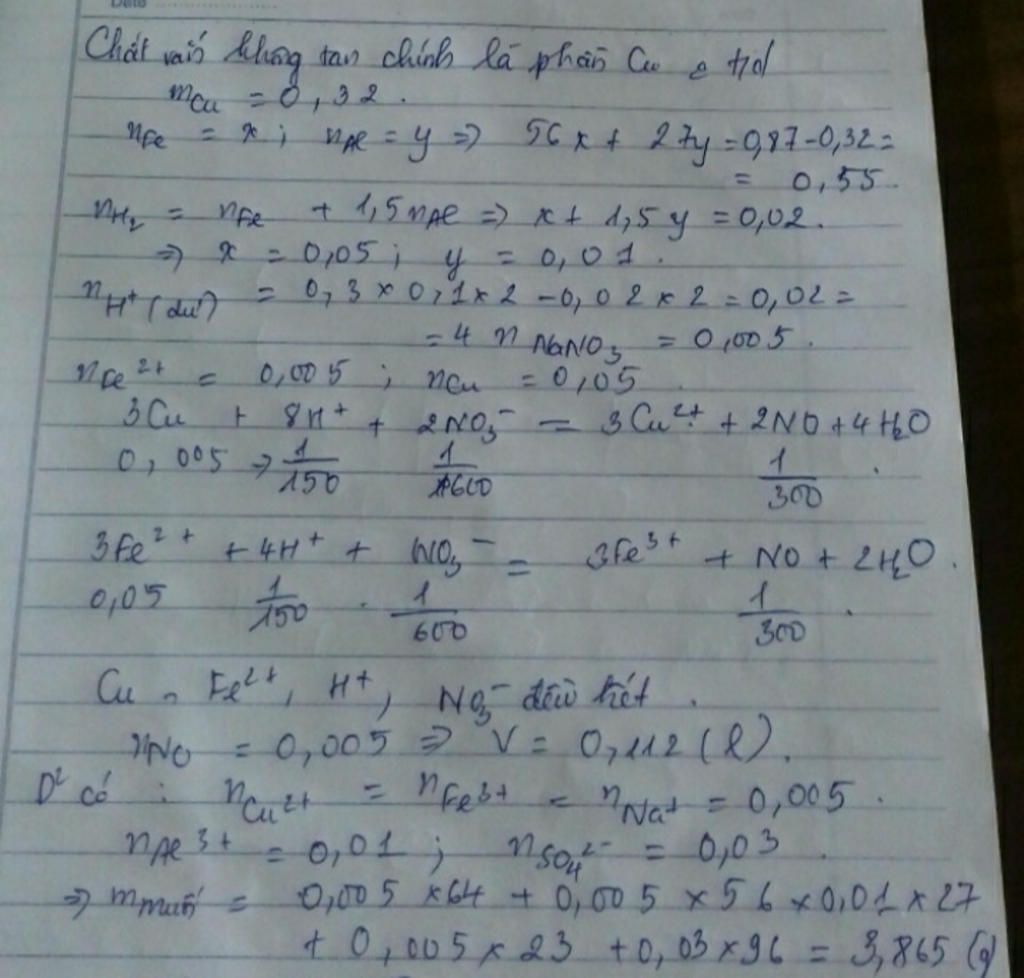 Date
Chất rắn không tan chính là phần Cu
mCu = 0,32.
nFe = x ; nAl = y => 56x + 27y = 0,87-0,32 =
= 0,55.
nH2 = nFe + 1,5nAl => x + 1,5y = 0,02.
=> x = 0,05 ; y = 0,01.
nH+ (dư) = 0,3 × 0,1 × 2 - 0,02 × 2 = 0,02 =
= 4 n NaNO3 = 0,005.
nFe2+ = 0,005 ; nCu = 0,05
3Cu + 8H+ + 2NO3- = 3Cu2+ + 2NO + 4H2O
0,005 => 1/150 1/600 1/300 .
3Fe2+ + 4H+ + NO3- = 3Fe3+ + NO + 2H2O.
0,05 1/150 . 1/600 1/300 .
Cu, Fe2+, H+, NO3- đều hết.
nNO = 0,005 => V = 0,112 (l).
D2 có : nCu2+ = nFe3+ = nNa+ = 0,005.
nAl3+ = 0,01 ; nSO42- = 0,03.
=> m muối = 0,005 × 64 + 0,005 × 56 × 0,01 × 27
+ 0,005 × 23 + 0,03 × 96 = 3,865 (g)